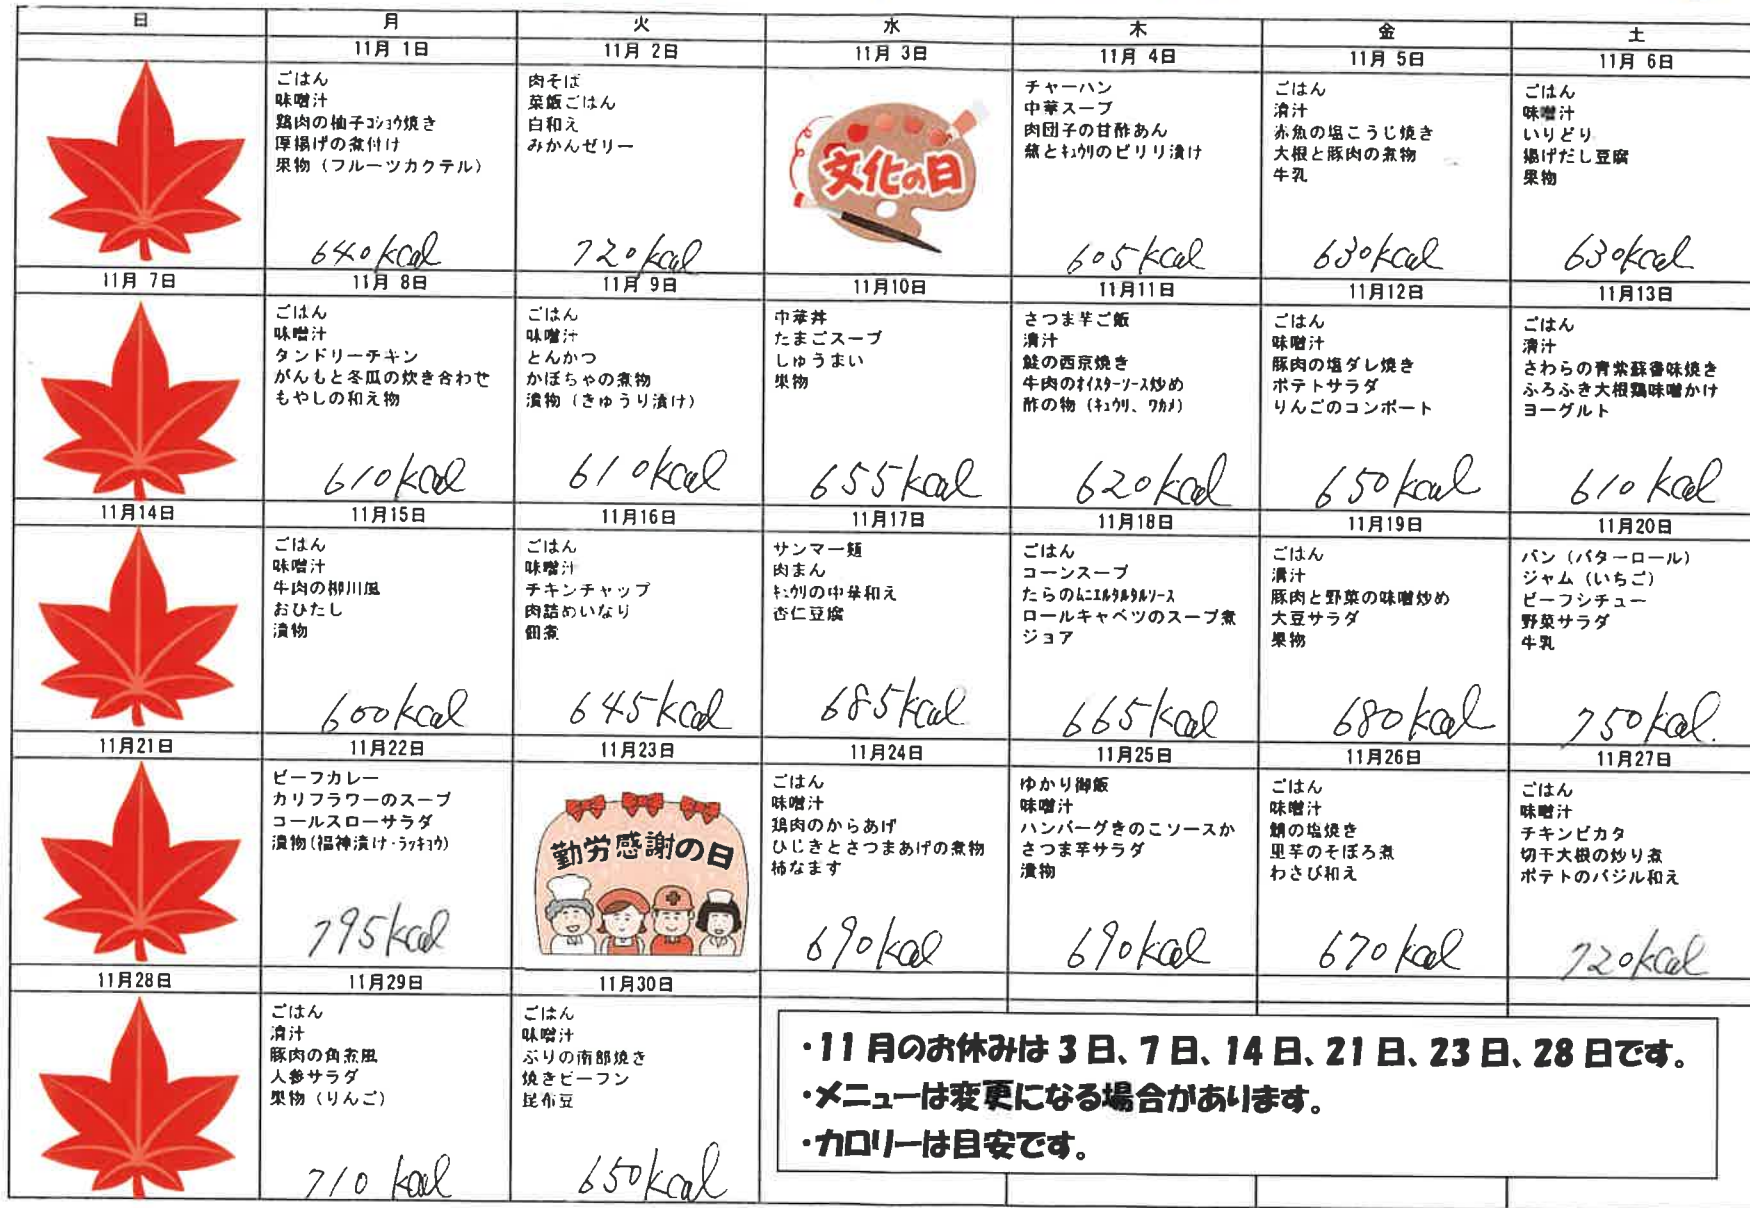 日 月 火 水 木 金 土
11月 1日 11月 2日 11月 3日 11月 4日 11月 5日 11月 6日
ごはん
味噌汁
鶏肉の柚子コショウ焼き
厚揚げの煮付け
果物（フルーツカクテル）
640kcal
肉そば
菜飯ごはん
白和え
みかんゼリー
720kcal
文化の日
チャーハン
中華スープ
肉団子の甘酢あん
蕪とキュウリのピリリ漬け
605kcal
ごはん
清汁
赤魚の塩こうじ焼き
大根と豚肉の煮物
牛乳
630kcal
ごはん
味噌汁
いりどり
揚げだし豆腐
果物
630kcal
11月 7日 11月 8日 11月 9日 11月10日 11月11日 11月12日 11月13日
ごはん
味噌汁
タンドリーチキン
がんもと冬瓜の炊き合わせ
もやしの和え物
610kcal
ごはん
味噌汁
とんかつ
かぼちゃの煮物
漬物（きゅうり漬け）
610kcal
中華丼
たまごスープ
しゅうまい
果物
655kcal
さつま芋ご飯
清汁
鮭の西京焼き
牛肉のオイスターソース炒め
酢の物（キュウリ、ワカメ）
620kcal
ごはん
味噌汁
豚肉の塩ダレ焼き
ポテトサラダ
りんごのコンポート
650kcal
ごはん
清汁
さわらの青紫蘇香味焼き
ふろふき大根鶏味噌かけ
ヨーグルト
610kcal
11月14日 11月15日 11月16日 11月17日 11月18日 11月19日 11月20日
ごはん
味噌汁
牛肉の柳川風
おひたし
漬物
600kcal
ごはん
味噌汁
チキンチャップ
肉詰めいなり
佃煮
645kcal
サンマー麺
肉まん
キュウリの中華和え
杏仁豆腐
685kcal
ごはん
コーンスープ
たらのムニエルタルタルソース
ロールキャベツのスープ煮
ジョア
665kcal
ごはん
清汁
豚肉と野菜の味噌炒め
大豆サラダ
果物
680kcal
パン（バターロール）
ジャム（いちご）
ビーフシチュー
野菜サラダ
牛乳
750kcal.
11月21日 11月22日 11月23日 11月24日 11月25日 11月26日 11月27日
ビーフカレー
カリフラワーのスープ
コールスローサラダ
漬物(福神漬け・ラッキョウ)
795kcal
勤労感謝の日
ごはん
味噌汁
鶏肉のからあげ
ひじきとさつまあげの煮物
柿なます
690kcal
ゆかり御飯
味噌汁
ハンバーグきのこソースか
さつま芋サラダ
漬物
690kcal
ごはん
味噌汁
鯖の塩焼き
里芋のそぼろ煮
わさび和え
670kcal
ごはん
味噌汁
チキンピカタ
切干大根の炒り煮
ポテトのバジル和え
720kcal
11月28日 11月29日 11月30日
ごはん
清汁
豚肉の角煮風
人参サラダ
果物（りんご）
710kcal
ごはん
味噌汁
ぶりの南部焼き
焼きビーフン
昆布豆
650kcal
・11月のお休みは3日、7日、14日、21日、23日、28日です。
・メニューは変更になる場合があります。
・カロリーは目安です。